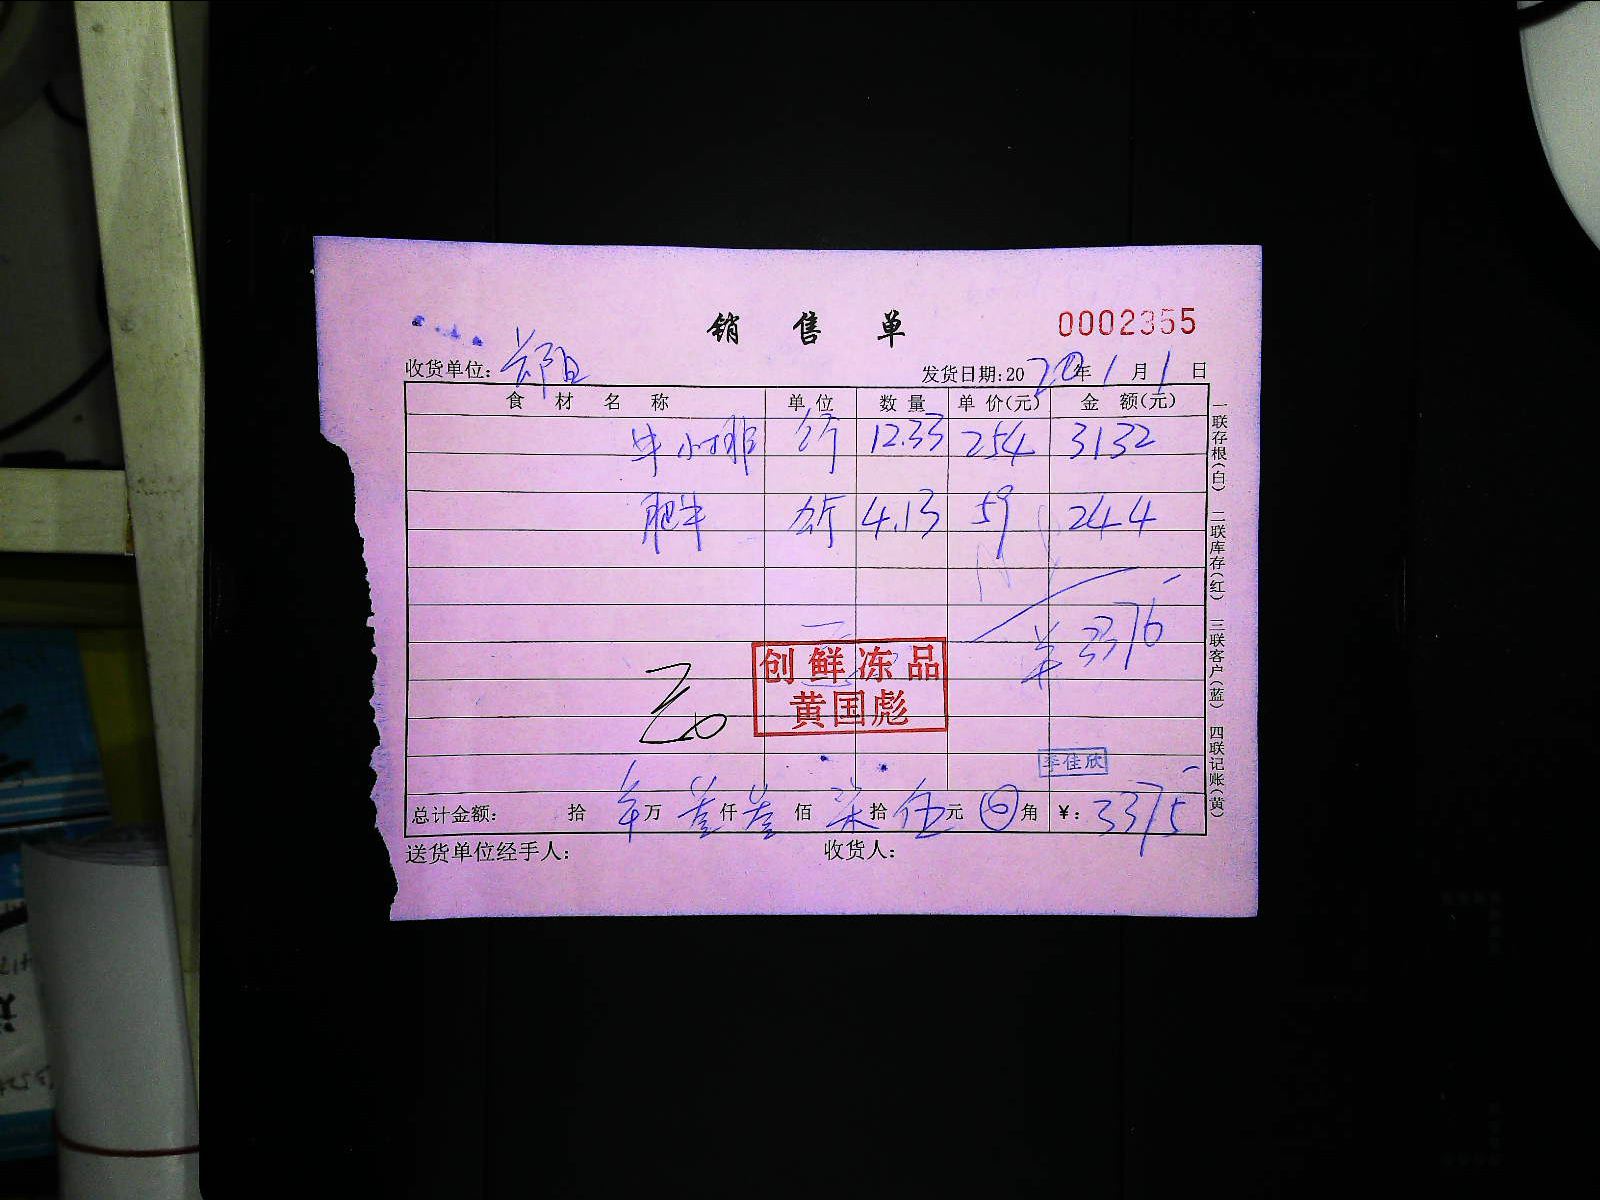 销售单
0002355
收货单位:
发货日期:2020年1月1日
食材名称 单位 数量 单价(元) 金额(元)
牛小排 公斤 12.33 254 3132
肥牛 公斤 4.13 59 244
¥3376
创鲜冻品
黄国彪
李佳欣
总计金额: 拾 万 叁仟叁佰柒拾伍元 角 ¥:3375
送货单位经手人: 收货人:
一联存根(白) 二联库存(红) 三联客户(蓝) 四联记账(黄)